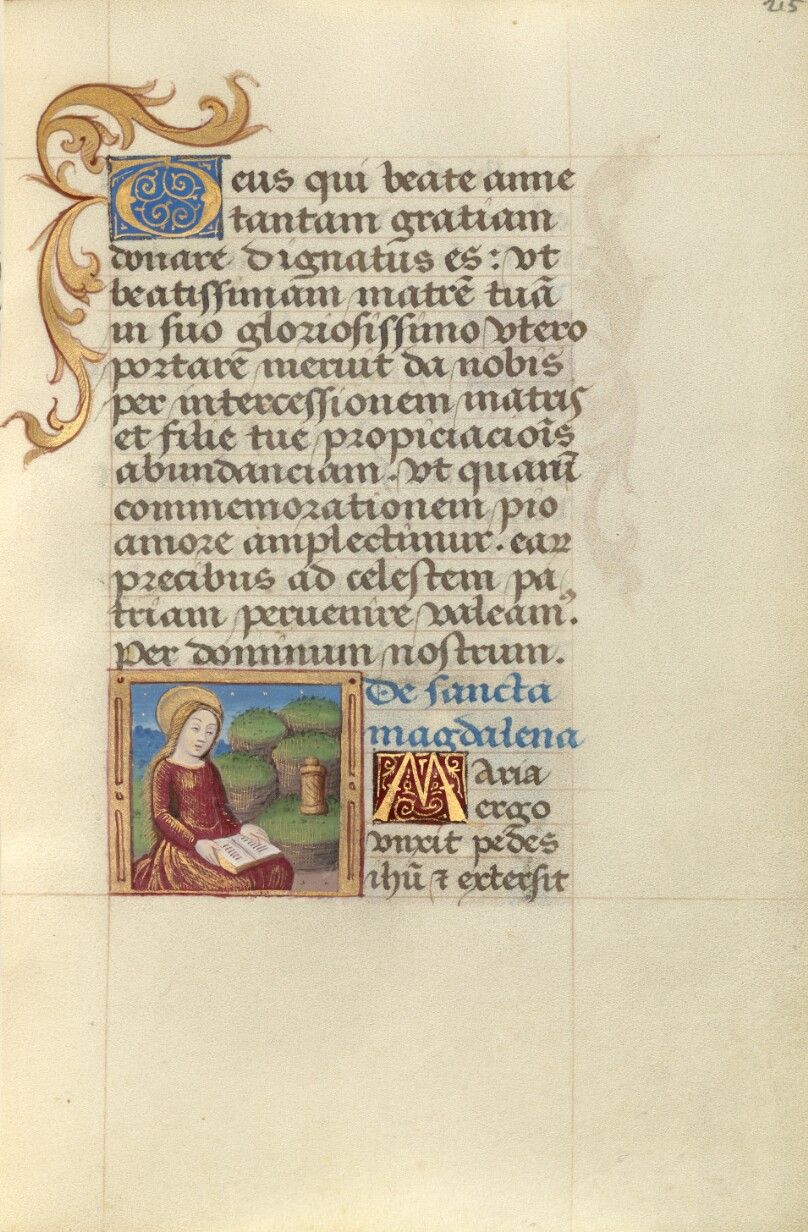 215
Deus qui beate anne
tantam gratiam
donare dignatus es: vt
beatissimam matrē tuā
in suo gloriosissimo vtero
portare meruit da nobis
per intercessionem matris
et filie tue propiciaciōis
abundanciam. vt quarū
commemorationem pio
amore amplectimur. earꝝ
precibus ad celestem pa
triam peruenire valeamꝰ.
Per dominum nostrum.
De sancta
magdalena
Maria
ergo
vnxit pedes
ihū ⁊ extersit